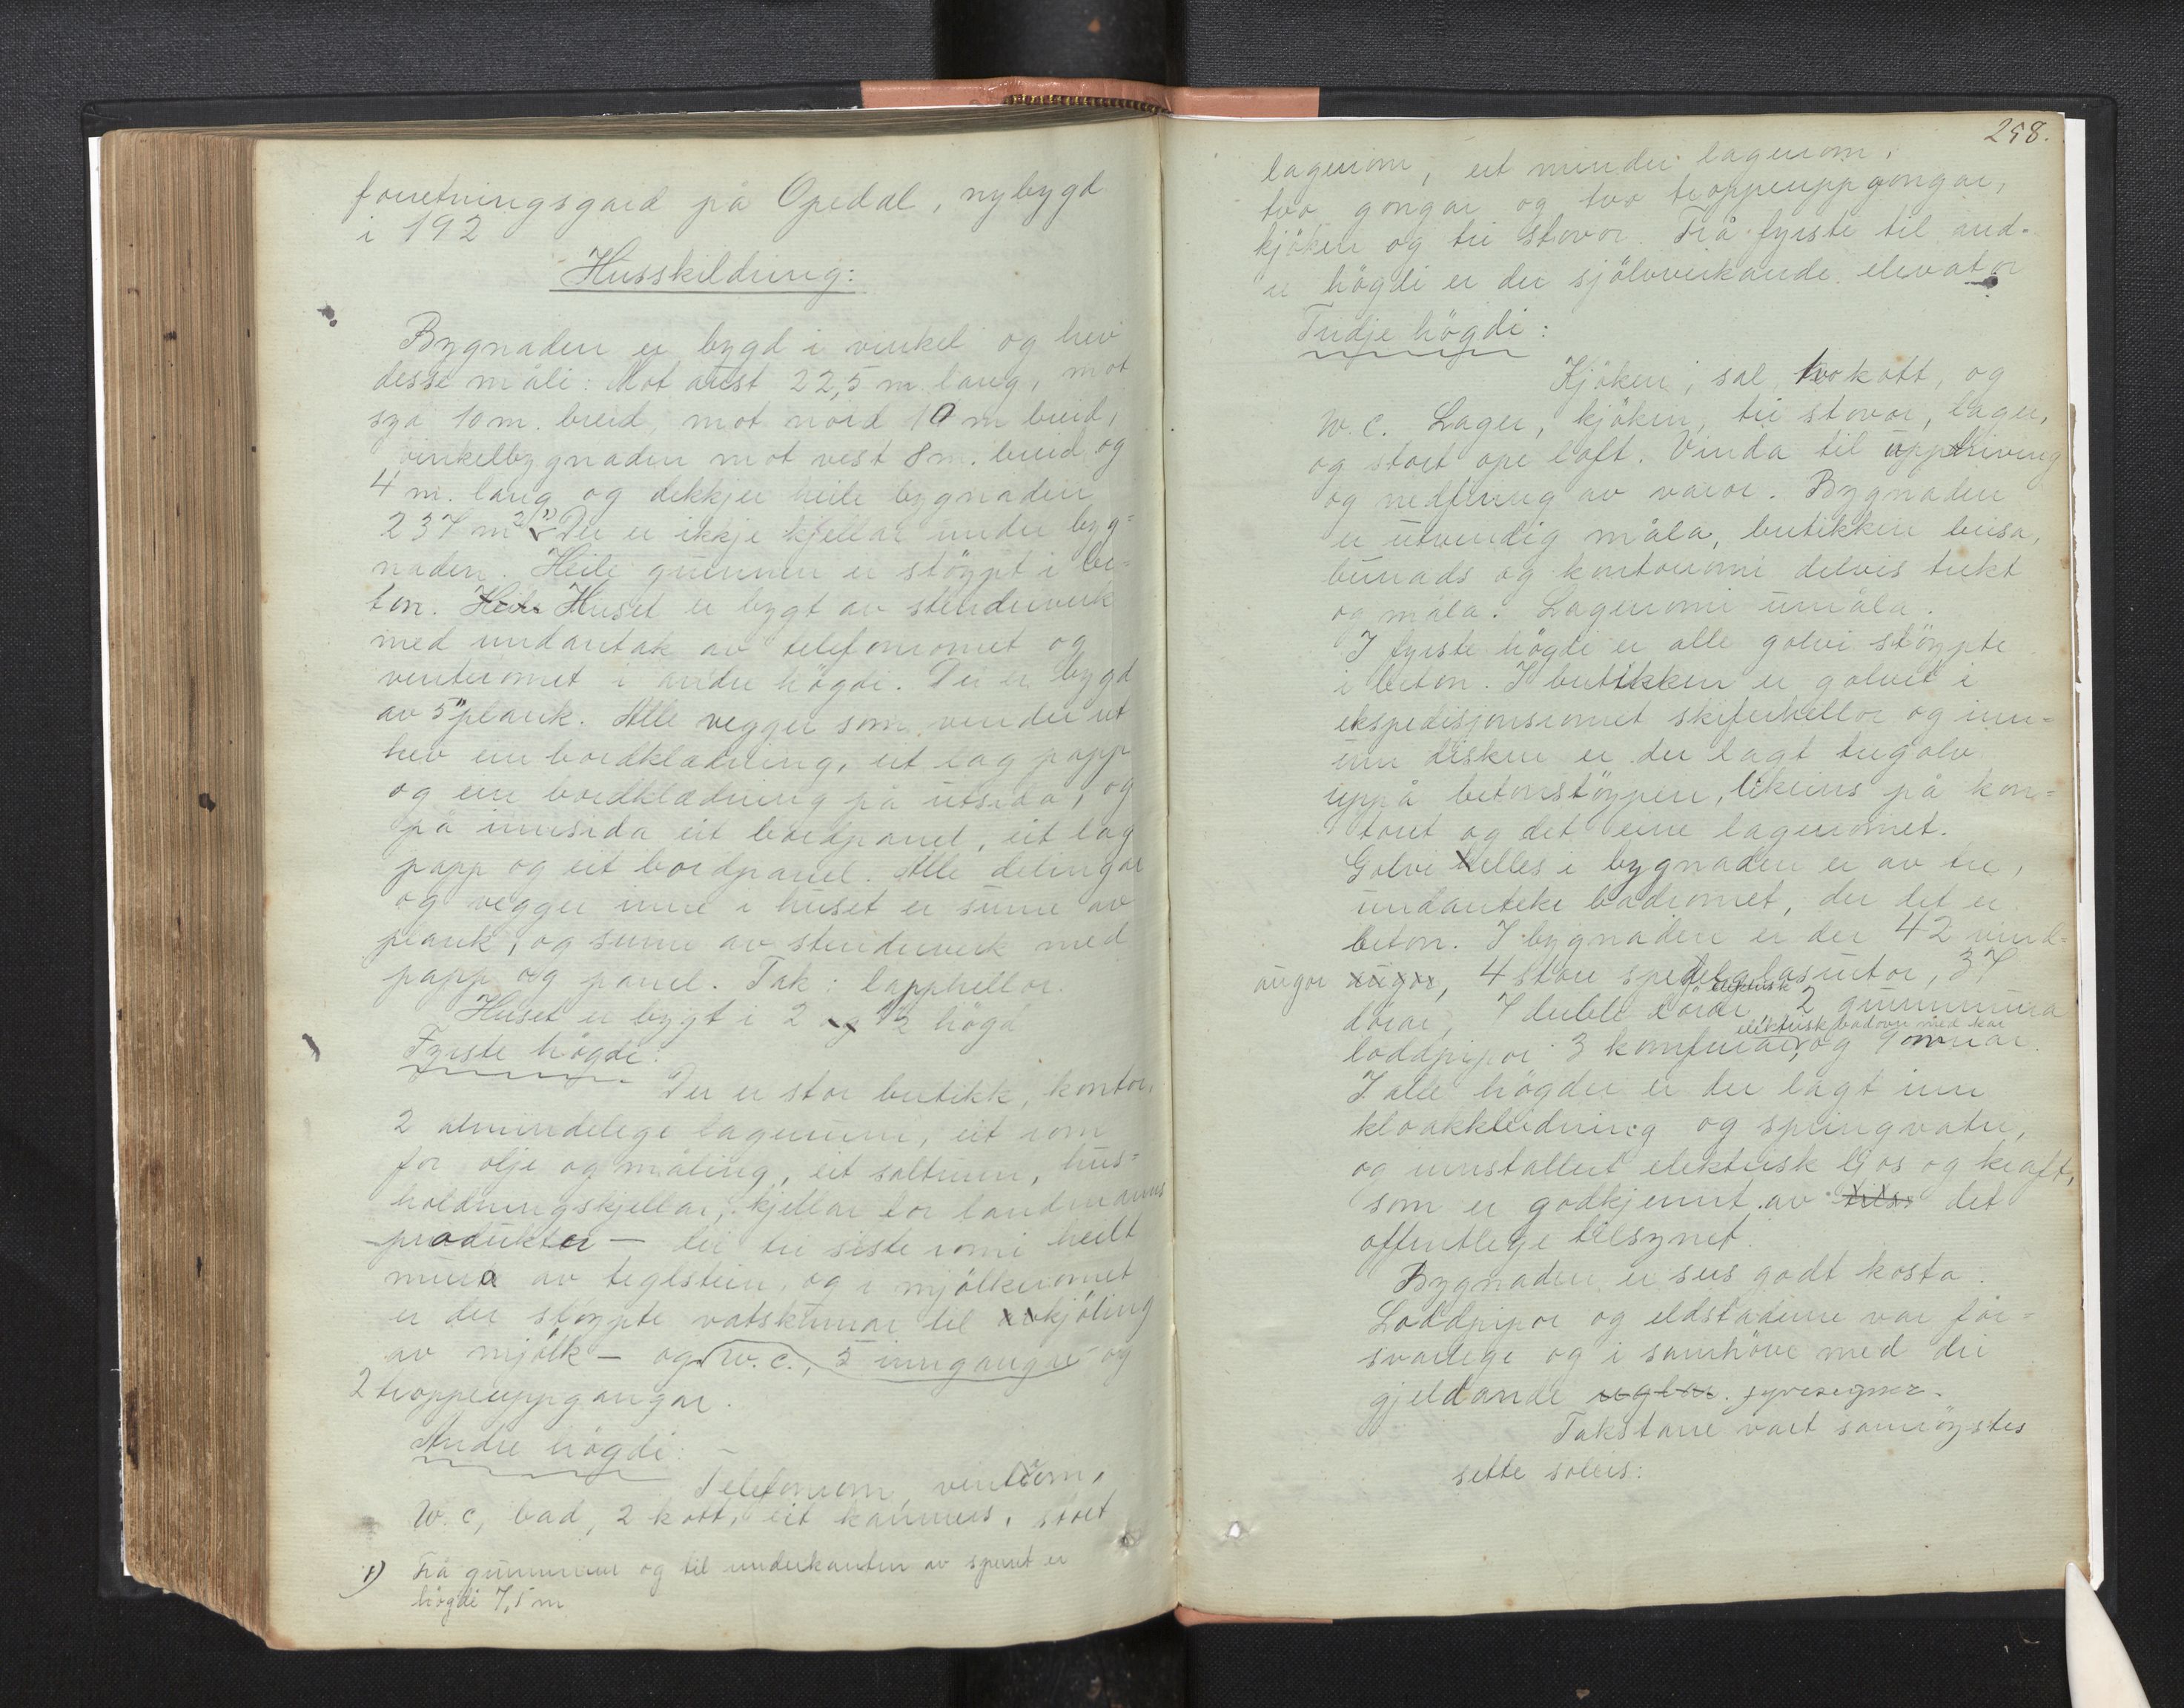 forretningsgard på Opedal, nybygd
i 192
Husskildring:
Bygnaden er bygd i vinkel og hev
desse måli: Mot aust 22,5 m lang, mot
syd 10 m. breid, mot nord 10 m breid,
vinkelbygnaden mot vest 8 m. breid og
4 m. lang og dekkjer heile bygnaden
237 m² 1) Der er ikkje kjellar under byg=
naden. Heile grunnen er støypt i be=
ton. Heile Huset er bygt av stenderverk
med undantak av telefonromet og
venteromet i andre högdi. Der er bygd
av 5" plank. Alle vegger som vender ut
hev ein bordklædning, eit lag papp
og ein bordklædning på utsida, og
på innsida eit bordpanel, eit lag
papp og eit bordpanel. Alle delingar
og vegger inne i huset er sume av
plank, og sume av stenderverk med
papp og panel. Tak: lapphellor.
Huset er bygt i 2 og 1/2 högd
Fyrste högdi:
Der er stor butikk, kontor,
2 almindelege lagerrum, eit rom
for olje og måling, eit saltrum, hus=
holdningskjellar, kjellar for landmanns
produkter – dei tri siste romi heilt
mura av teglstein, og i mjölkeromet
er der støypte vatskummar til avkjöling
av mjölk – og w.c., 5 inngangar og
2 troppeuppgangar.
Andre högdi: –
Telefonrom, venterom,
W.c, bad, 2 kott, eit kammers, stort
1) Frå grunnmur og til underkanten av sperret er
högdi 7,5 m
258.
lagerrom, eit mindre lagerrom,
tvo gongar og tvo troppeuppgongar,
kjöken og tri stovor. Frå fyrste til and-
re högdi er der sjölvverkande elevator
Tridje högdi:
Kjöken, sal, tvo kott, og
W.c. Lager, kjöken, tri stovor, lager,
og stort ope loft. Vinda til uppdriving
og nedfiring av varor. Bygnaden
er utvendig måla, butikken beisa,
bunads og kontorromi delvis trekt
og måla. Lagerromi umåla.
I fyrste högdi er alle golvi støypte
i beton. I butikken er golvet i
ekspedisjonsromet skiferhellor og inn=
um disken er der lagt tregolv
uppå betonstøypen, likeins på kon=
toret og det eine lagerromet.
Golvi elles i bygnaden er av tre,
undanteke badromet, der det er
beton. I bygnaden er der 42 vind=
augor augor, 4 store speilglasrutor, 37
dörar, 7 duble dörar, 2 grunnmura
elektrisk
loddpipor 3 komfurar, og 9 omnar.
elektrisk badovn med kar
I alle högder er der lagt inn
kloakkleidning og springvatn,
og innstallert elektrisk ljos og kraft,
som er godkjennt av tils det
offentlege tilsynet.
Bygnaden er sers godt kosta.
Loddpipor og eldstaderne var for=
svarlege og i samhöve med dei
gjeldande reglar.
Takstane vart samröystes
sette soleis: